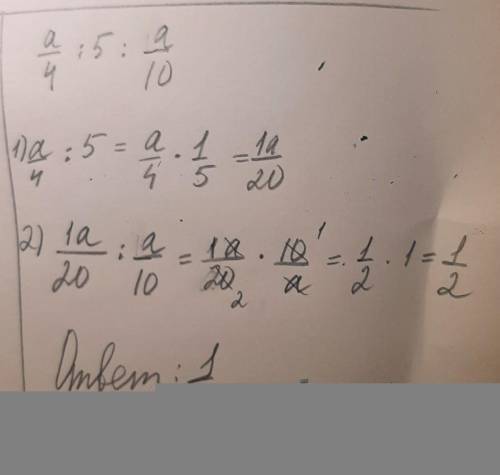 a/4 : 5 : a/10
1) a/4 : 5 = a/4 · 1/5 = 1a/20
2) 1a/20 : a/10 = 1a/20 2 · 10/a 1 = 1/2 · 1 = 1/2
Ответ: 1